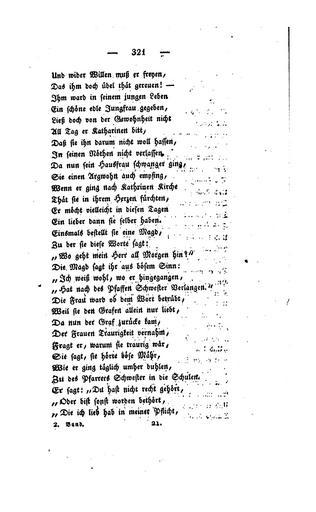 — 321 —
Und wider Willen muß er freyen,
Das ihm doch übel thät gereuen! —
Ihm ward in seinem jungen Leben
Ein schöne edle Jungfrau gegeben,
Ließ doch von der Gewohnheit nicht
All Tag er Katharinen bitt,
Daß sie ihn darum nicht woll hassen,
In seinen Nöthen nicht verlassen.
Da nun sein Hausfrau schwanger ging,
Sie einen Argwohn auch empfing,
Wenn er ging nach Kathrinen Kirche
Thät sie in ihrem Herzen fürchten,
Er möcht vielleicht in diesen Tagen
Ein lieber dann sie selber haben.
Einsmals bestellt sie eine Magd,
Zu der sie diese Worte sagt:
„Wo geht mein Herr all Morgen hin?"
Die Magd sagt ihr aus bösem Sinn:
„Ich weiß wohl, wo er hingegangen,
„Hat nach des Pfaffen Schwester Verlangen."
Die Frau ward ob dem Wort betrübt,
Weil sie den Grafen allein nur liebt,
Da nun der Graf zurücke kam,
Der Frauen Traurigkeit vernahm,
Fragt er, warum sie traurig wär,
Sie sagt, sie hörte böse Mähr,
Wie er ging täglich umher buhlen,
Zu des Pfarrers Schwester in die Schulen.
Er sagt: „Du hast nicht recht gehört,
„Oder bist sonst worden bethört,
„Die ich lieb hab in meiner Pflicht,
2. Band. 21.